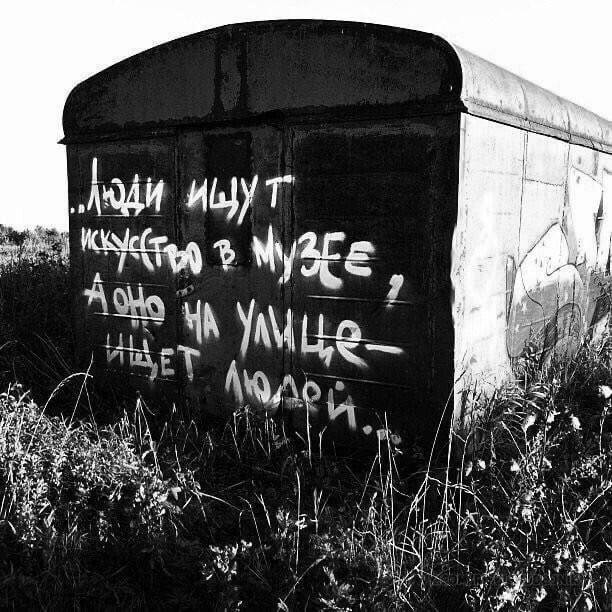 ..Люди ищут
искусство в музее,
А оно на улице-
ищет людей...